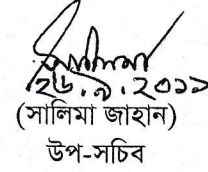 সালিমা
২৬.৯.২০১১
(সালিমা জাহান)
উপ-সচিব